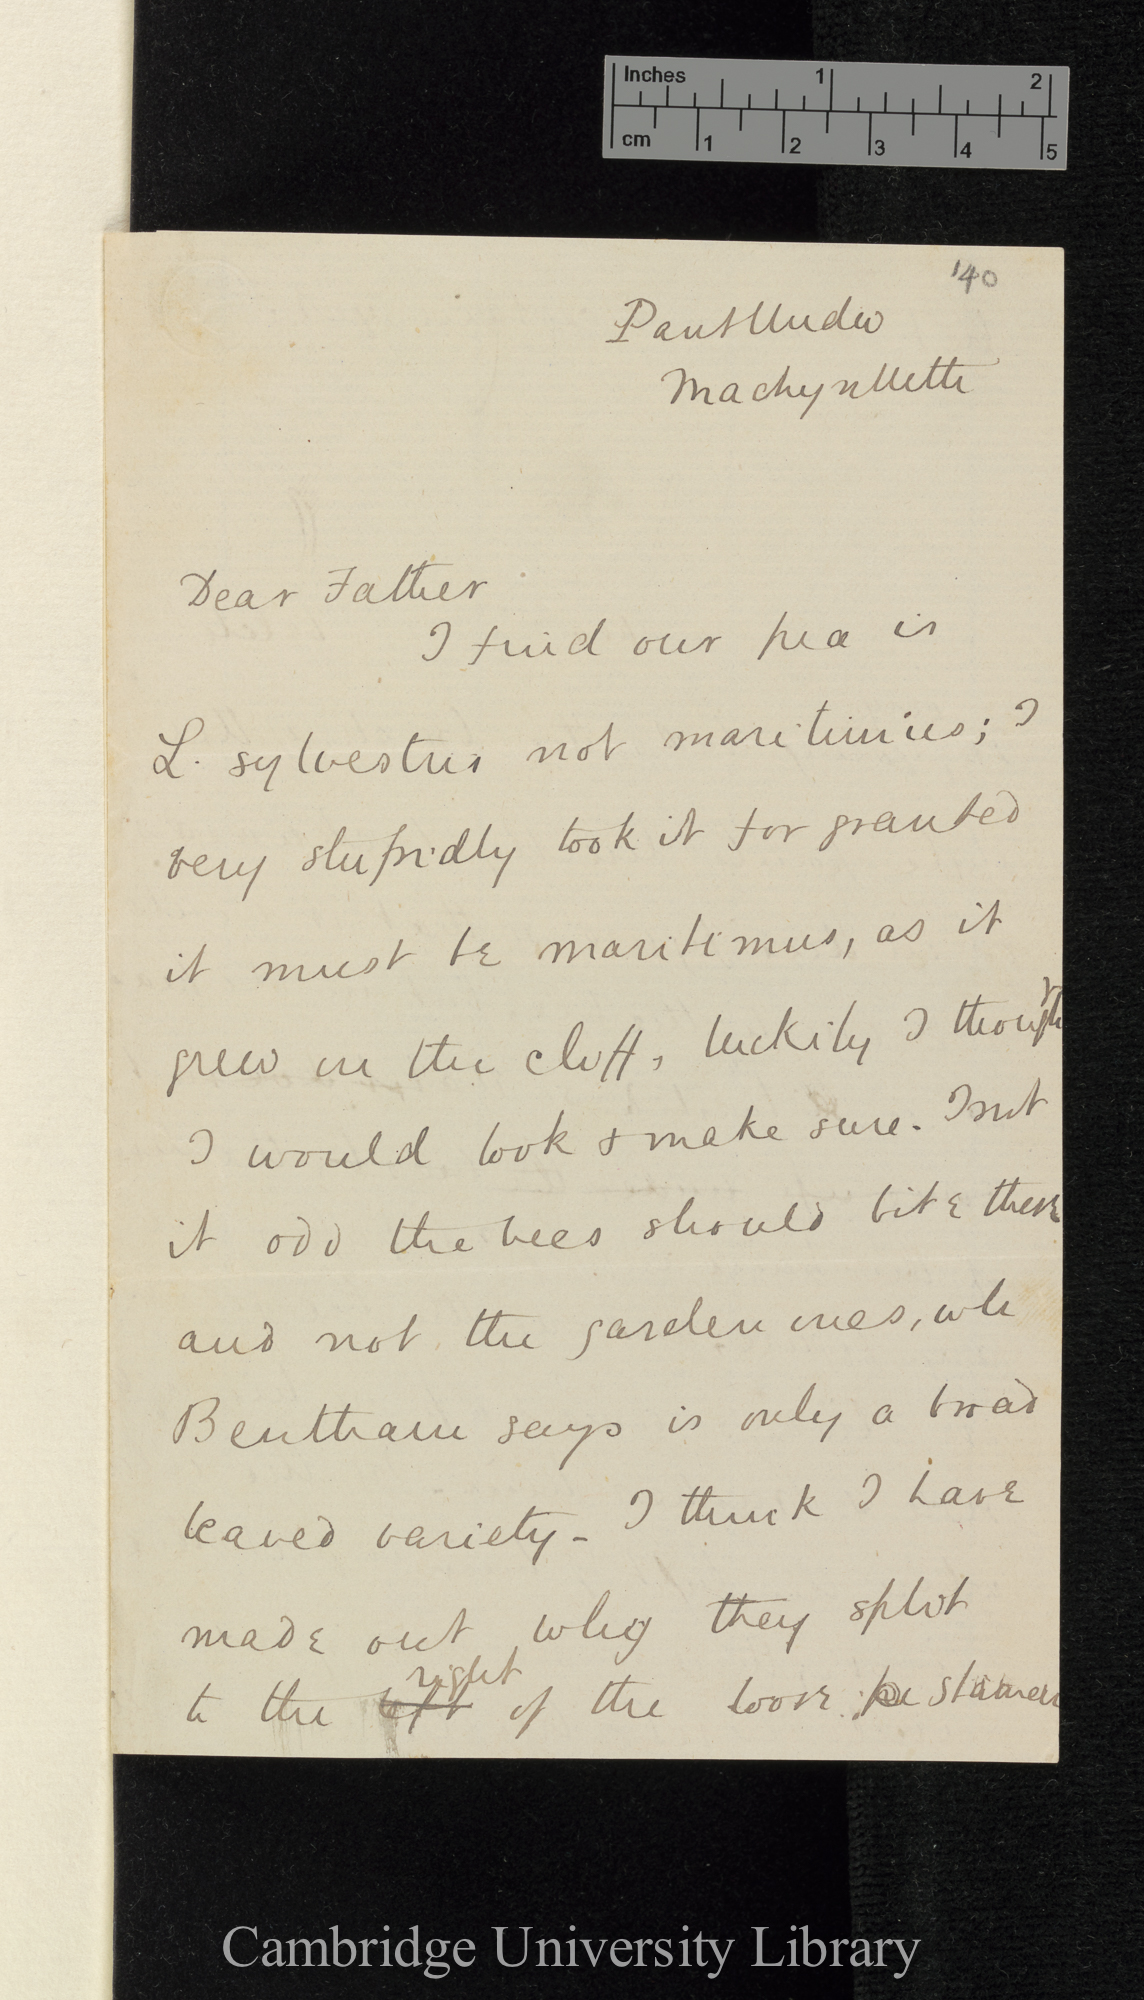 Inches 1 2
cm 1 2 3 4 5
'40
Pantlludw
Machynlleth
Dear Father
I find our pea is
L. sylvestris not maritimus; I
very stupidly took it for granted
it must be maritimus, as it
grew on the cliff, luckily I thought
I would look & make sure. Isn't
it odd the bees should bite these
and not the garden ones, wh
Bentham says is only a broad
leaved variety - I think I have
made out why they split
right
to the left of the loose stamen
Cambridge University Library